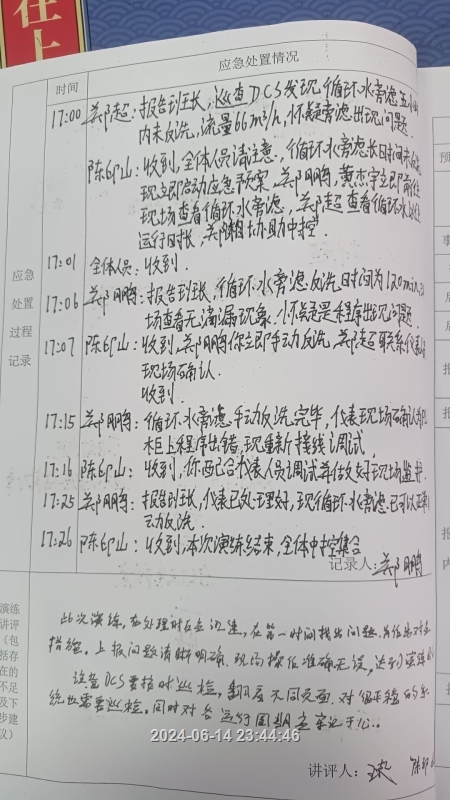 在上
应急处置情况
时间
17:00 郑超:报告班长,巡查DCS发现循环水旁滤五小时
内未反洗,流量66m³/h,怀疑旁滤出现问题.
陈邱山:收到,全体人员请注意,循环水旁滤长时间未
现立即启动应急预案,郑鹏鹏,黄杰宇立即前往
现场查看循环水旁滤,郑超查看循环水
运行时长,协助中控.
17:01 全体人员:收到.
17:06 郑鹏鹏:报告班长,循环水旁滤反洗时间为120min,
场查看无滴漏现象.怀疑是程序出现问题.
17:07 陈邱山:收到,郑鹏鹏你立即手动反洗,郑超联系仪表
现场确认.
收到.
17:15 郑鹏鹏:循环水旁滤手动反洗完毕,仪表现场确认
柜上程序出错,现重新接线调试.
17:16 陈邱山:收到,你配合仪表人员调试并做好现场监护.
17:25 郑鹏鹏:报告班长,仪表已处理好,现循环水旁滤已可以正常
动反洗.
17:26 陈邱山:收到,本次演练结束,全体中控集合
记录人:郑鹏鹏
应急
处置
过程
记录
此次演练,在处理时反应迅速,在第一时间找出问题,并作出对应
措施。上报问题清晰明确,现场操作准确无误,达到演练
DCS要按时巡检,翻阅不同页面.对
统也需要巡检.同时对各运行周期应牢记于心.
2024-06-14 23:44:46
讲评人:
演练
讲评
(包
括存
在的
不足
及下
步建
议)